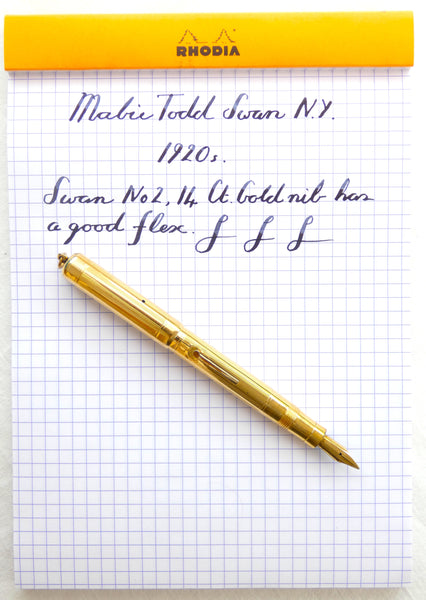 RHODIA
Mabie Todd Swan N.Y.
1920s.
Swan No2, 14 Ct. Gold nib has
a good flex. f f f